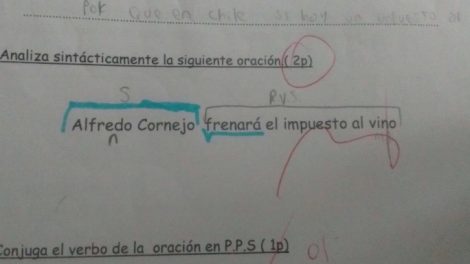 por que en chile si hay un impuesto al
Analiza sintácticamente la siguiente oración ( 2p)
S P.V.S
Alfredo Cornejo frenará el impuesto al vino
n
Conjuga el verbo de la oración en P.P.S ( 1p)